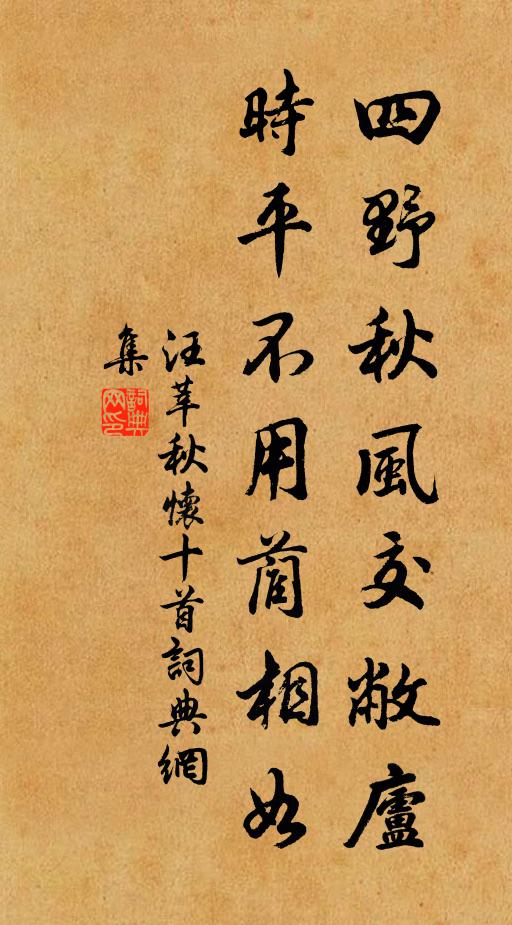 四野秋風交敝廬
時平不用藺相如
汪莘秋懷十首詞典網
集
詞典網印